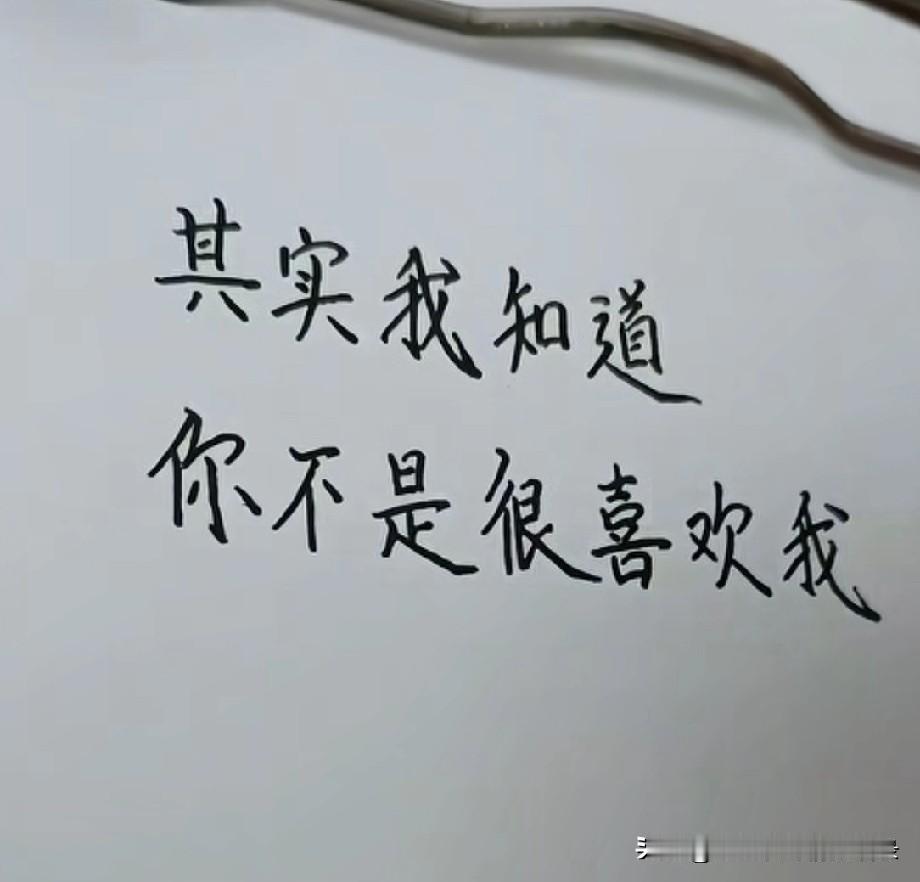 其实我知道
你不是很喜欢我